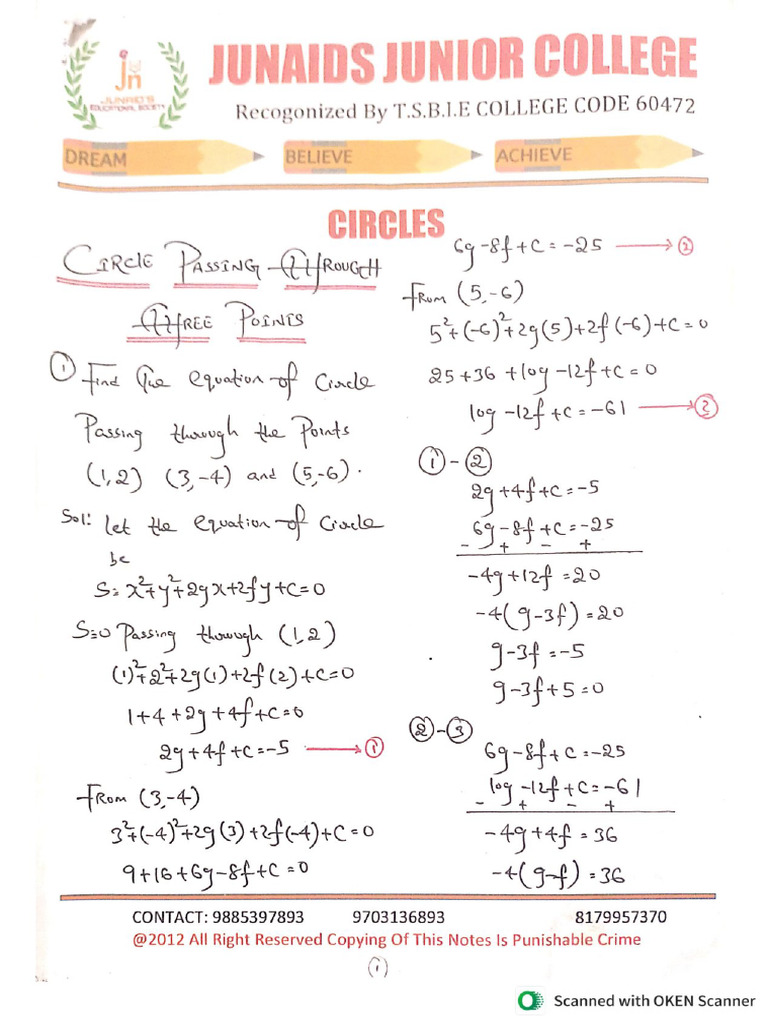 jn
JUNAID'S
EDUCATIONAL SOCIETY
JUNAIDS JUNIOR COLLEGE
Recogonized By T.S.B.I.E COLLEGE CODE 60472
DREAM
BELIEVE
ACHIEVE
CIRCLES
CIRCLE PASSING THROUGH
THREE POINTS
① Find the equation of Circle
Passing through the Points
(1,2) (3,-4) and (5,-6).
Sol: let the equation of Circle
be
S= x²+y²+2gx+2fy+c=0
S=0 Passing through (1,2)
(1)²+2²+2g(1)+2f(2)+c=0
1+4+2g+4f+c=0
2g+4f+c=-5 → ①
From (3,-4)
3²+(-4)²+2g(3)+2f(-4)+c=0
9+16+6g-8f+c=0
6g-8f+c=-25 → ②
From (5,-6)
5²+(-6)²+2g(5)+2f(-6)+c=0
25+36+10g-12f+c=0
10g-12f+c=-61 → ②
①-②
2g+4f+c=-5
6g-8f+c=-25
- + - +
-4g+12f=20
-4(g-3f)=20
g-3f=-5
g-3f+5=0
②-③
6g-8f+c=-25
10g-12f+c=-61
- + - +
-4g+4f=36
-4(g-f)=36
CONTACT: 9885397893 9703136893 8179957370
@2012 All Right Reserved Copying Of This Notes Is Punishable Crime
(1)
Scanned with OKEN Scanner